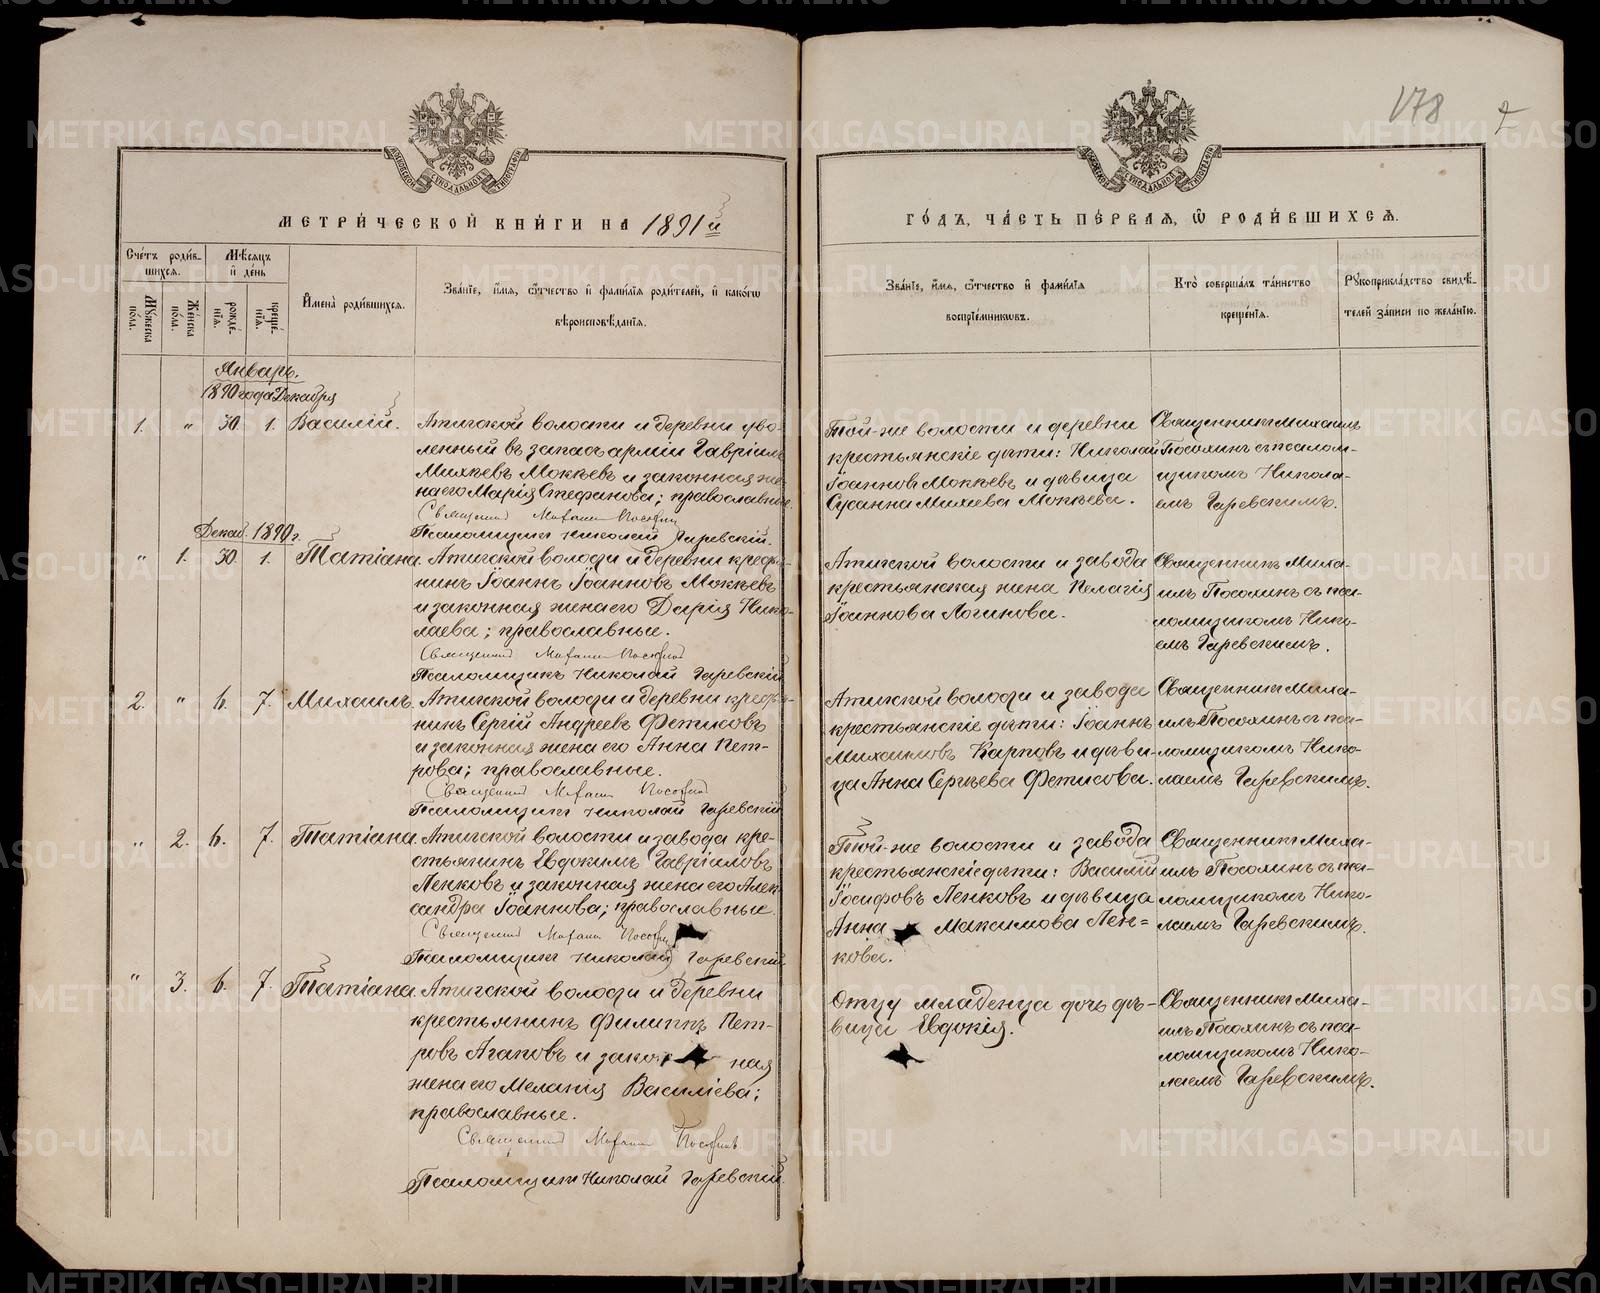 178
МЕТРИ́ЧЕСКОЙ КНИ́ГИ НА 1891й
ГО́ДЪ, ЧА́СТЬ ПЕ́РВАѦ, Ѿ РОДИ́ВШИХСѦ.
Сче́тъ роди́в-
шихсѧ.
Мѣ́сѧцъ
и҆ де́нь
Мꙋ́жеска
по́ла.
Же́нска
по́ла.
рожде́-
нїѧ.
креще́-
нїѧ.
И҆мена̀ роди́вшихсѧ.
Зва́нїе, и҆́мѧ, ѻ҆́тчество и҆ фами́лїѧ роди́телей, и҆ како́гѡ
вѣроисповѣ́данїѧ.
Зва́нїе, и҆́мѧ, ѻ҆́тчество и҆ фами́лїѧ
воспрїе́мникѡвъ.
Кто̀ соверша́лъ та́инство
креще́нїѧ.
Рꙋкоприкла́дство свидѣ́-
телей за́писи по жела́нїю.
Январь.
1890 года Декабря
1. " 30 1. Василій.
Атигской волости и деревни уво-
ленный въ запасъ арміи Гавріилъ
Михѣевъ Мокѣевъ и законная же-
на его Марія Стефанова; православные.
Священникъ Михаилъ Посохинъ
Псаломщикъ Николай Гаревскій.
Той-же волости и деревни
крестьянскіе дѣти: Николай
Іоанновъ Мокѣевъ и дѣвица
Сусанна Михеева Мокѣева.
Священникъ Михаилъ
Посохинъ съ псалом-
щикомъ Никола-
емъ Гаревскимъ.
Декаб. 1890 г.
" 1. 30 1. Татіана.
Атигской волости и деревни кресть-
нинъ Іоаннъ Іоанновъ Мокѣевъ
и законная жена его Дарія Нико-
лаева; православные.
Священникъ Михаилъ Посохинъ
Псаломщикъ Николай Гаревскій
Атигской волости и завода
крестьянская жена Пелагія
Іоаннова Логинова.
Священникъ Миха-
илъ Посохинъ съ пса-
ломщикомъ Нико-
емъ Гаревскимъ.
2. " 6. 7. Михаилъ.
Атигской волости и деревни кресть-
нинъ Сергій Андреевъ Фетисовъ
и законная жена его Анна Пет-
рова; православные.
Священникъ Михаилъ Посохинъ
Псаломщикъ Николай Гаревскій
Атигской волости и завода
крестьянскіе дѣти: Іоаннъ
Михаиловъ Карповъ и дѣви-
ца Анна Сергѣева Фетисова.
Священникъ Миха-
илъ Посохинъ съ пса-
ломщикомъ Нико-
лаемъ Гаревскимъ.
" 2. 6. 7. Татіана.
Атигской волости и завода кре-
стьянинъ Евдокимъ Гавріиловъ
Пенковъ и законная жена его Алек-
сандра Іоаннова; православные.
Священникъ Михаилъ Посохинъ
Псаломщикъ Николай Гаревскій
Той-же волости и завода
крестьянскіе дѣти: Василій
Іосифовъ Пенковъ и дѣвица
Анна Максимова Пен=
кова.
Священникъ Миха-
илъ Посохинъ съ пса-
ломщикомъ Нико-
лаемъ Гаревскимъ.
" 3. 6. 7. Татіана.
Атигской волости и деревни
крестьянинъ Филиппъ Пет-
ровъ Агаповъ и закон ная
жена его Меланія Василіева;
православные.
Священникъ Михаилъ Посохинъ
Псаломщикъ Николай Гаревскій.
Отцу младенца дочь дѣ-
вица Евдокія.
Священникъ Миха-
илъ Посохинъ съ пса-
ломщикомъ Нико-
лаемъ Гаревскимъ.